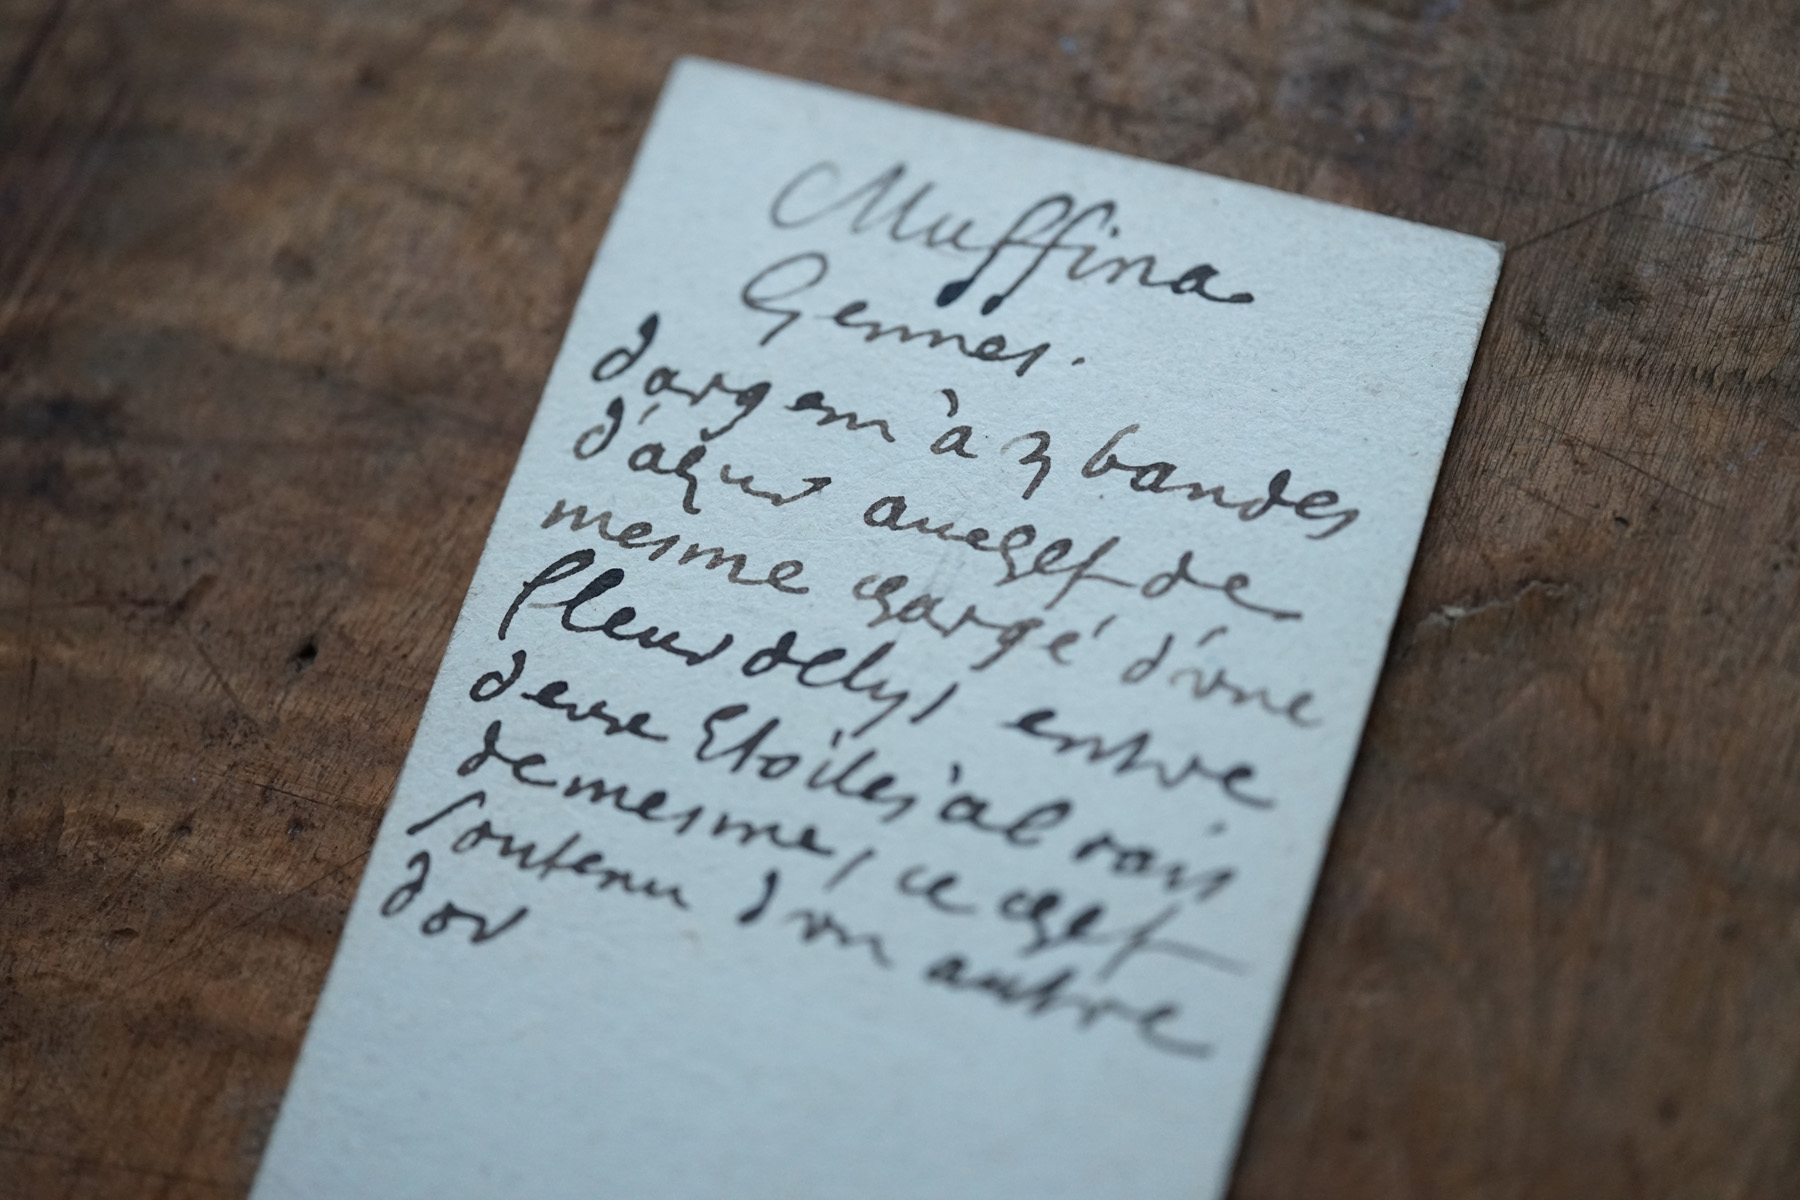 Muffina
Gennes.
dargent à 3 bandes
d'azur au chef de
mesme chargé d'vne
fleur delys entre
deux Etoiles à l rais
de mesme, ce chef
soutenu d'vn autre
dor